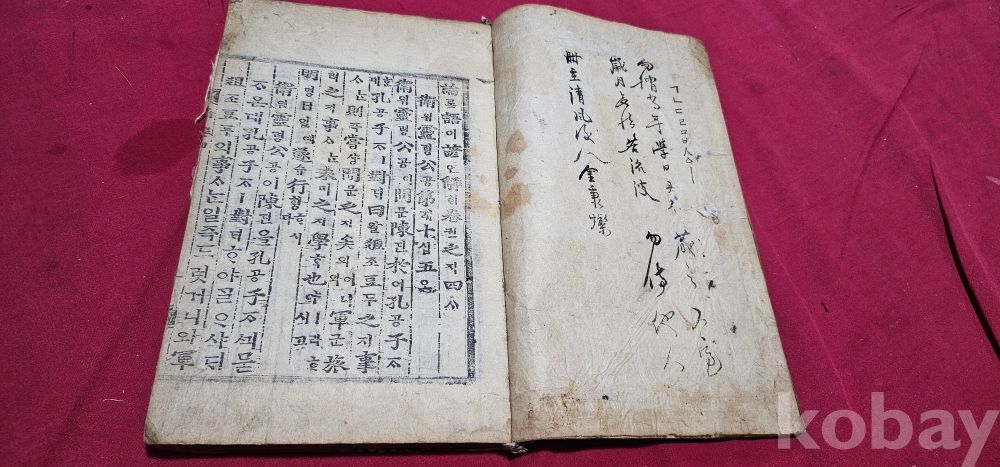 勿惜當年學日多
歲月無情若流波
勿傳他人
冊主清風後人金秉燦
論론語어諺언解ᄒᆡ卷권之지四ᄉᆞ
衛위靈령公공第뎨十십五오
衛위靈령公공이問문陳딘於어孔공子ᄌᆞ
ᄒᆞᆫ대孔공子ᄌᆞㅣ對ᄃᆡ曰왈俎조豆두之지事
ᄉᆞᄂᆞᆫ則즉嘗샹聞문之지矣의어니와軍군旅
려之지事ᄉᆞᄂᆞᆫ未미之지學ᄒᆞᆨ也야ㅣ라ᄒᆞ시고
明명日일에遂슈行ᄒᆡᆼᄒᆞ시다
衛위靈령公공이陳딘을孔공子ᄌᆞᄭᅴ묻
ᄌᆞ온대孔공子ᄌᆞㅣ對ᄃᆡᄒᆞ야ᄀᆞᆯᄋᆞ샤ᄃᆡ
俎조豆두의事ᄉᆞᄂᆞᆫ일즉드럿거니와軍
kobay